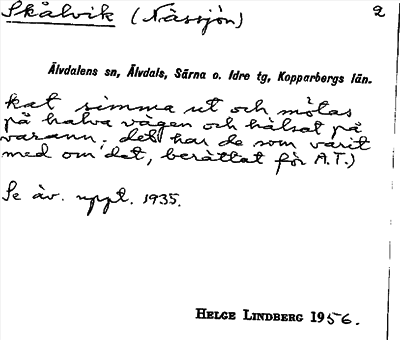 Skålvik (Nässjön) 2
Älvdalens sn, Älvdals, Särna o. Idre tg, Kopparbergs län.
kat simma ut och mötas
på halva vägen och hälsat på
varann; det har de som varit
med om det, berättat för A.T.)
Se äv. uppt. 1935.
HELGE LINDBERG 1956.